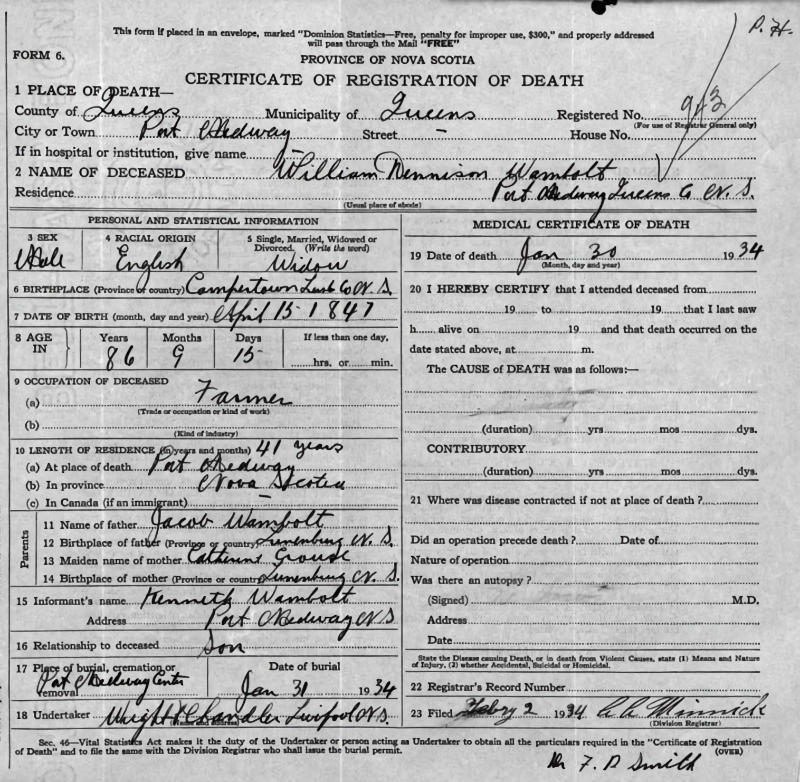 This form if placed in an envelope, marked "Dominion Statistics—Free, penalty for improper use, $300," and properly addressed
will pass through the Mail "FREE"
P. H.
FORM 6.
PROVINCE OF NOVA SCOTIA
CERTIFICATE OF REGISTRATION OF DEATH
1 PLACE OF DEATH—
County of Queens Municipality of Queens Registered No. 943
(For use of Registrar General only)
City or Town Port Medway Street – House No.
If in hospital or institution, give name –
2 NAME OF DECEASED William Dennison Wambolt
Residence Port Medway Queens Co N. S.
(Usual place of abode)
PERSONAL AND STATISTICAL INFORMATION
3 SEX 4 RACIAL ORIGIN 5 Single, Married, Widowed or
Divorced. (Write the word)
Male English Widow
6 BIRTHPLACE (Province or country) Campertown Lunb Co N. S.
7 DATE OF BIRTH (month, day and year) April 15 1847
8 AGE IN Years Months Days If less than one day,
86 9 15 hrs. or min.
9 OCCUPATION OF DECEASED
(a) Farmer
(Trade or occupation or kind of work)
(b)
(Kind of industry)
10 LENGTH OF RESIDENCE (in years and months) 41 years
(a) At place of death Port Medway
(b) In province Nova Scotia
(c) In Canada (if an immigrant) –
Parents
11 Name of father Jacob Wambolt
12 Birthplace of father (Province or country) Lunenburg N. S.
13 Maiden name of mother Catherine Crouse
14 Birthplace of mother (Province or country) Lunenburg N. S.
15 Informant's name Kenneth Wambolt
Address Port Medway N S
16 Relationship to deceased Son
17 Place of burial, cremation or removal Date of burial
Port Medway Jan 31 1934
18 Undertaker Wright & Chandler Liverpool N. S.
MEDICAL CERTIFICATE OF DEATH
19 Date of death Jan 30 1934
(Month, day and year)
20 I HEREBY CERTIFY that I attended deceased from
19 to 19 that I last saw
h alive on 19 and that death occurred on
date stated above, at m.
The CAUSE of DEATH was as follows:—
(duration) yrs mos dys.
CONTRIBUTORY
(duration) yrs mos dys.
21 Where was disease contracted if not at place of death?
Did an operation precede death? Date of
Nature of operation
Was there an autopsy?
(Signed) M.D.
Address
Date
State the Disease causing Death, or in death from Violent Causes, state (1) Means and Nature
of Injury, (2) whether Accidental, Suicidal or Homicidal.
22 Registrar's Record Number
23 Filed Feby 2 1934 Minnick
(Division Registrar)
Sec. 46—Vital Statistics Act makes it the duty of the Undertaker or person acting as Undertaker to obtain all the particulars required in the "Certificate of Registration
of Death" and to file the same with the Division Registrar who shall issue the burial permit. (OVER)
Dr F. P Smith